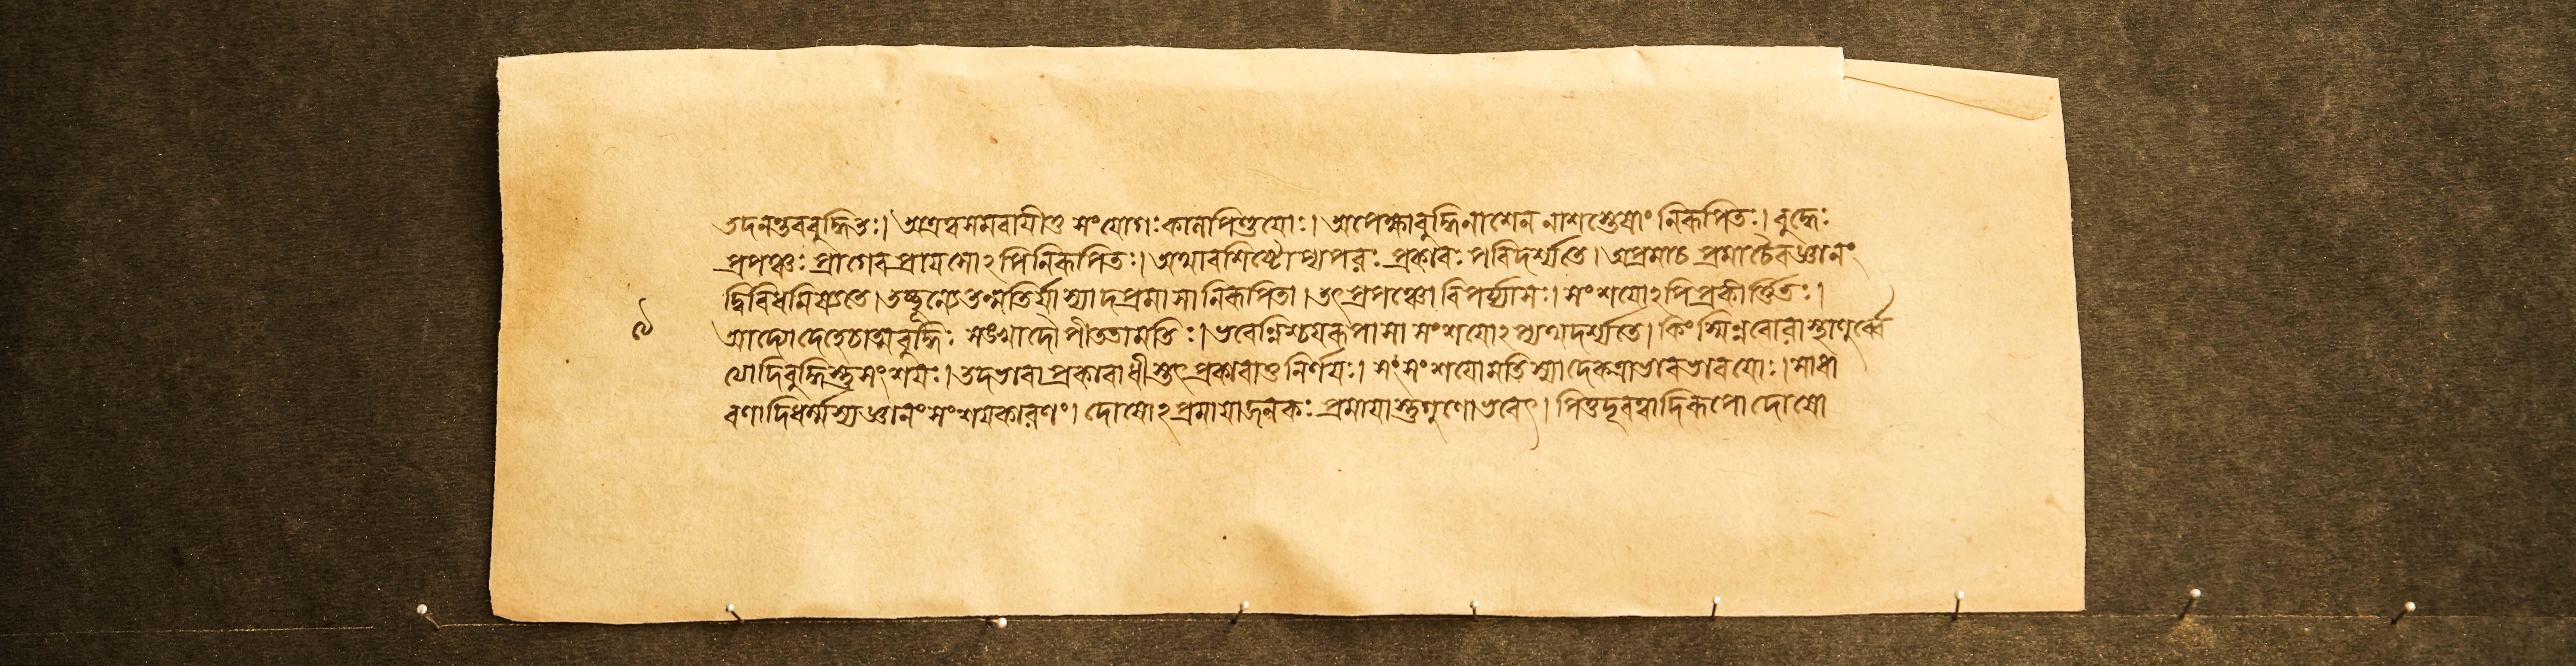 তদনন্তরবুদ্ধিতঃ। অত্রত্বসমবায়ীতু সংযোগঃকালপিণ্ডয়োঃ। অপেক্ষাবুদ্ধিনাশেন নাশস্তেষাং নিরূপিতঃ। বুদ্ধেঃ
প্রপঞ্চঃ প্রাগেব প্রায়শোঽপিনিরূপিতঃ। অথাবশিষ্টোপ্যপরঃ প্রকারঃ পরিদর্শ্যতে। অপ্রমাচ প্রমাচৈবজ্ঞানং
দ্বিবিধমিষ্যতে। তচ্ছূন্যেতন্মতির্যাস্যাদপ্রমাসানিরূপিতা। তৎপ্রপঞ্চোবিপর্য্যাসঃ। সংশয়োঽপিপ্রকীর্ত্তিতঃ।
৯
আদ্যোদেহেচাত্মবুদ্ধিঃ শঙ্খাদৌপীততামতিঃ। ভবেন্নিশ্চয়রূপাসা সংশয়োঽপ্যথদর্শ্যতে। কিংস্বিন্নরোবাস্থাণুর্ব্বে
ত্যাদিবুদ্ধিস্তুসংশয়ঃ। তদভাবাপ্রকারাধীস্তৎপ্রকারাতুনির্ণয়ঃ। সসংশয়োমতির্যাস্যাদেকত্রাভাবভাবয়োঃ। সাধা
রণাদিধর্ম্মস্যজ্ঞানংসংশয়কারণং। দোষোঽপ্রমায়াজনকঃ প্রমায়াস্তুগুণোভবেৎ। পিত্তদূরত্বাদিরূপোদোষো